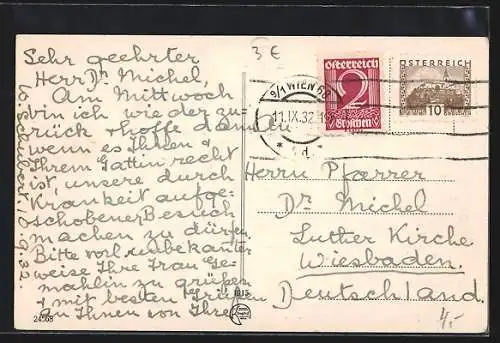 Sehr geehrter
Herr Dr. Michel,
Am Mittwoch
bin ich wieder zu-
rück + hoffe dann
wenn es Ihnen +
Ihrem Gattin recht
ist, unsere durch
Krankheit aufge-
schobener Besuch
machen zu dürfen.
Bitte unbekannter
weise Ihre Frau Ge-
mahlin zu grüßen
+ mit besten Grüßen
an Ihnen von Ihre
W. Schubert. 10.9.32.
3 €
Österreich
2
Groschen
ÖSTERREICH
10
9/1 WIEN 66
11.IX.32
* 1d *
Herrn Pfarrer
Dr. Michel
Luther Kirche
Wiesbaden.
Deutschland.
4,-
24568